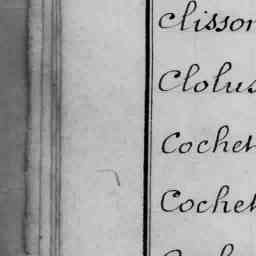 Clisson
Clolus
Cochet
Cochet